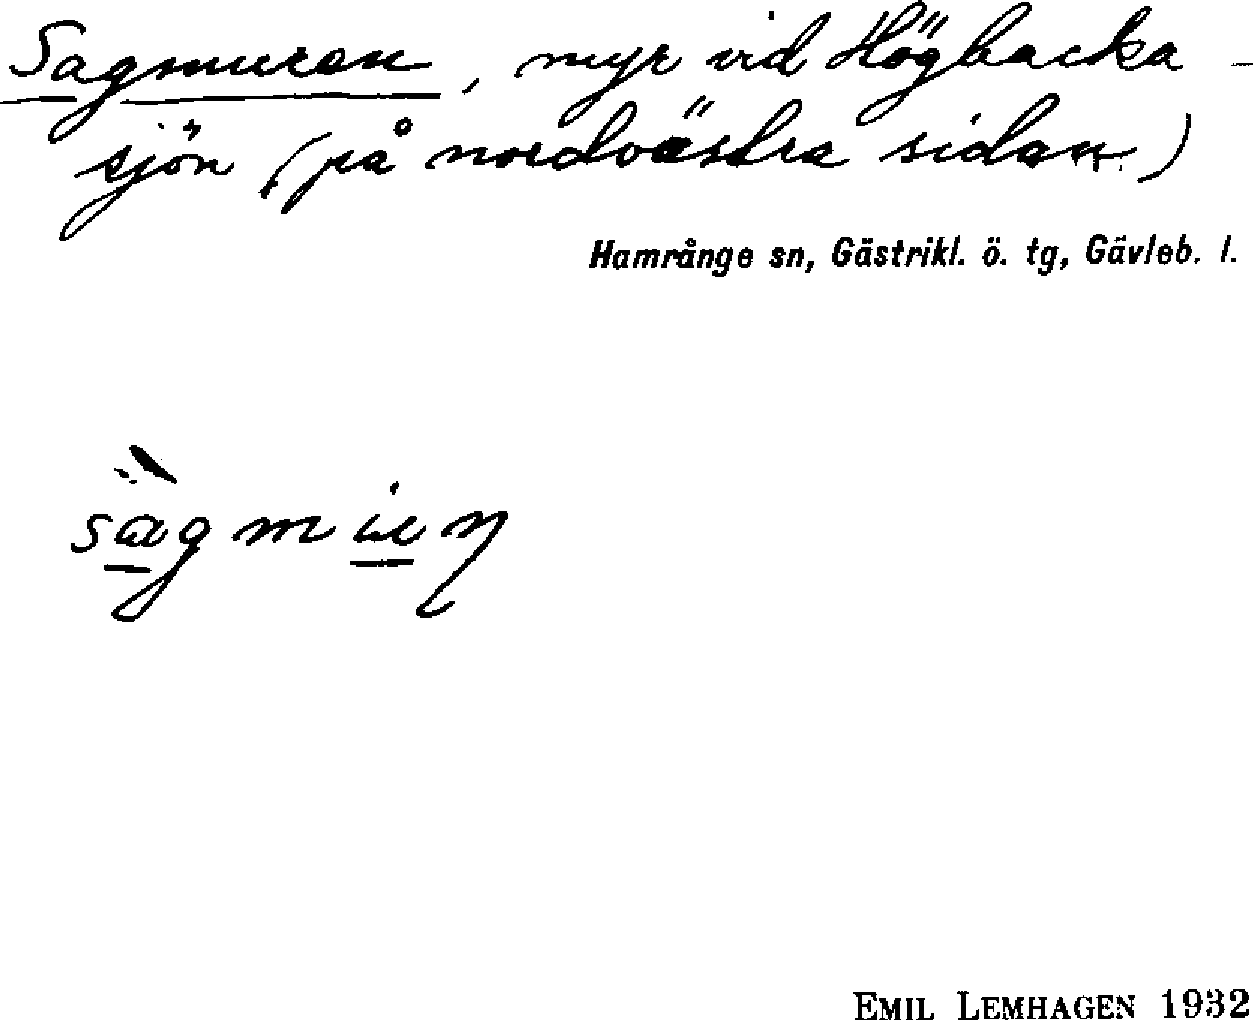 Sagmuren, myr vid Högbacka-
sjön (på nordvästra sidan.)
Hamrånge sn, Gästrikl. ö. tg, Gävleb. l.
EMIL LEMHAGEN 1932